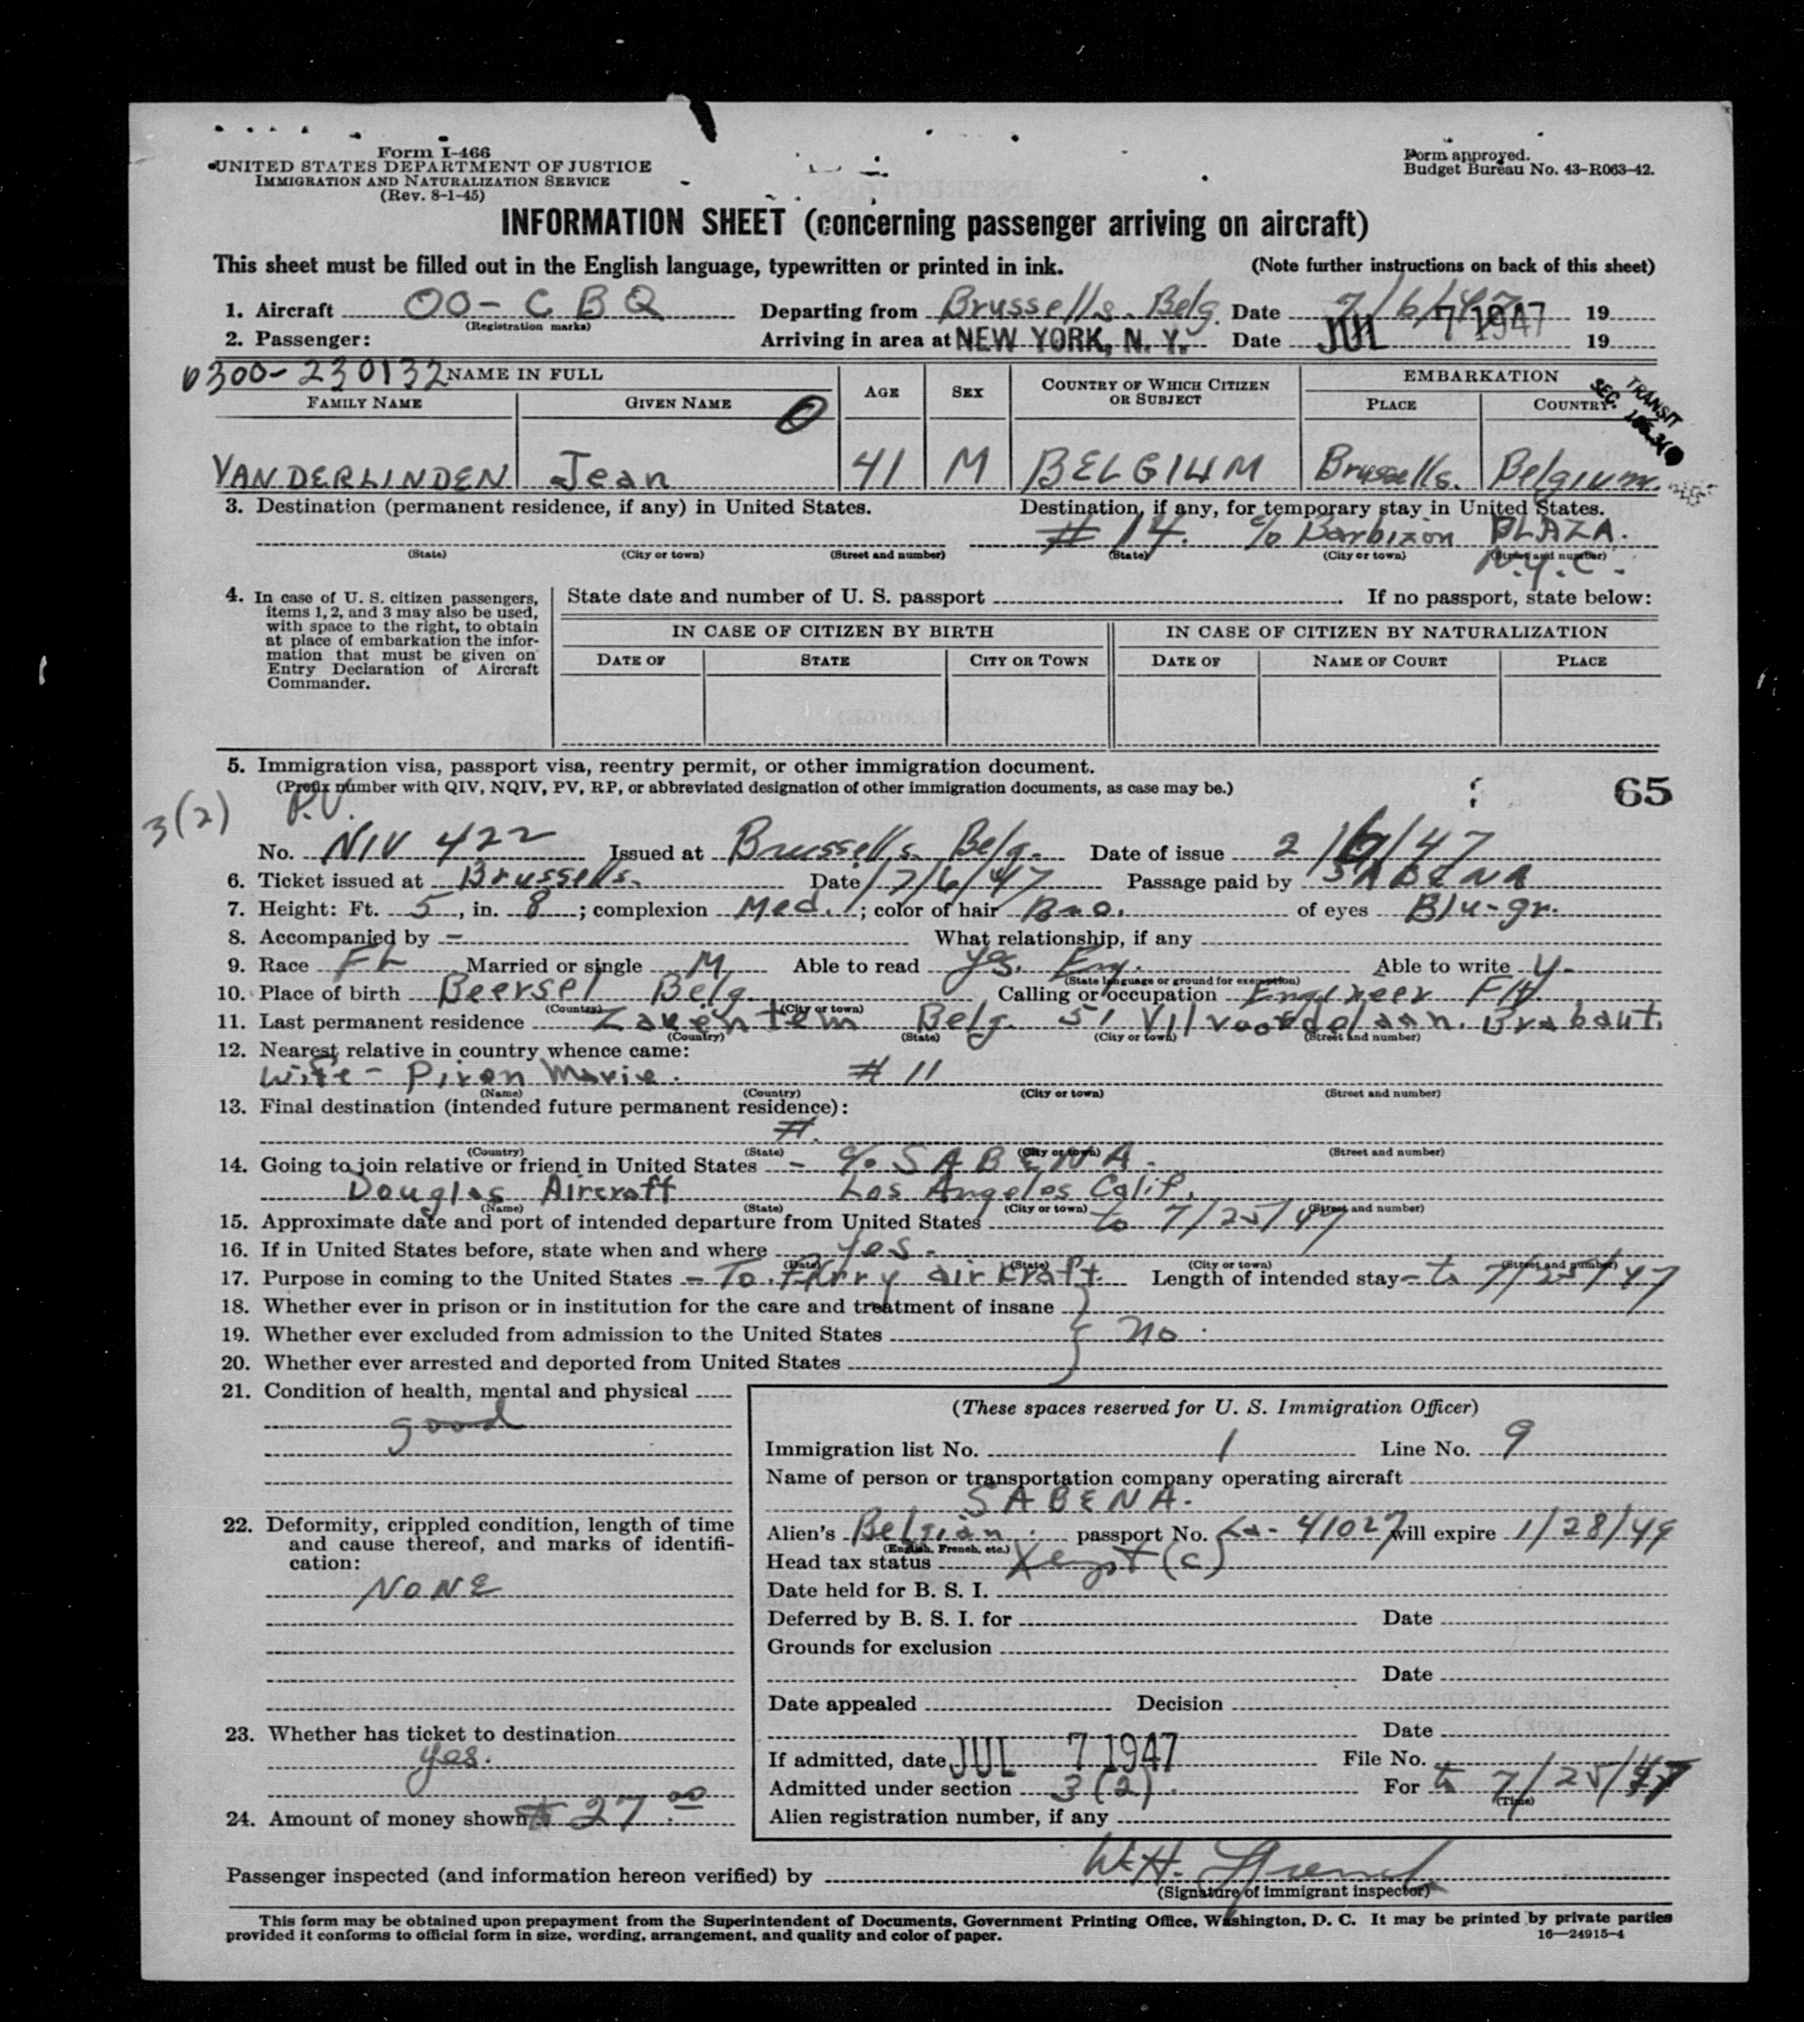 Form I-466
UNITED STATES DEPARTMENT OF JUSTICE
IMMIGRATION AND NATURALIZATION SERVICE
(Rev. 8-1-45)
Form approved.
Budget Bureau No. 43-R063-42.
INFORMATION SHEET (concerning passenger arriving on aircraft)
This sheet must be filled out in the English language, typewritten or printed in ink. (Note further instructions on back of this sheet)
1. Aircraft OO-CBQ Departing from Brussells. Belg. Date 7/6/47 19
(Registration marks)
2. Passenger: Arriving in area at NEW YORK, N. Y. Date JUL 7 1947 19
0300-230132 NAME IN FULL AGE SEX COUNTRY OF WHICH CITIZEN OR SUBJECT EMBARKATION
FAMILY NAME GIVEN NAME PLACE COUNTRY
TRANSIT
SEC.
VANDERLINDEN Jean 41 M BELGIUM Brussells. Belgium.
3. Destination (permanent residence, if any) in United States. Destination, if any, for temporary stay in United States.
# 14. c/o Barbizon PLAZA.
(State) (City or town) (Street and number) (State) (City or town) (Street and number)
N.Y.C.
4. In case of U. S. citizen passengers, items 1, 2, and 3 may also be used, with space to the right, to obtain at place of embarkation the information that must be given on Entry Declaration of Aircraft Commander.
State date and number of U. S. passport . If no passport, state below:
IN CASE OF CITIZEN BY BIRTH IN CASE OF CITIZEN BY NATURALIZATION
DATE OF STATE CITY OR TOWN DATE OF NAME OF COURT PLACE
5. Immigration visa, passport visa, reentry permit, or other immigration document.
(Prefix number with QIV, NQIV, PV, RP, or abbreviated designation of other immigration documents, as case may be.) 65
3(2) P.V.
No. NIV 422 Issued at Brussells. Belg. Date of issue 2/6/47
6. Ticket issued at Brussells. Date 7/6/47 Passage paid by SABENA
7. Height: Ft. 5, in. 8; complexion Med.; color of hair Bro. of eyes Blu-gr.
8. Accompanied by - What relationship, if any
9. Race FL Married or single M Able to read yes. Eng. Able to write y-
(State language or ground for exemption)
10. Place of birth Beersel Belg. Calling or occupation Engineer Flt.
(Country) (City or town)
11. Last permanent residence Zaventem Belg. 51 Vilvoordelaan. Brabant.
(Country) (State) (City or town) (Street and number)
12. Nearest relative in country whence came:
Wife - Piron Marie. # 11
(Name) (Country) (City or town) (Street and number)
13. Final destination (intended future permanent residence):
#.
(Country) (State) (City or town) (Street and number)
14. Going to join relative or friend in United States - c/o SABENA.
Douglas Aircraft Los Angeles Calif.
(Name) (State) (City or town) (Street and number)
15. Approximate date and port of intended departure from United States to 7/25/47
16. If in United States before, state when and where yes.
(Date) (State) (City or town) (Street and number)
17. Purpose in coming to the United States - To Ferry aircraft. Length of intended stay - to 7/25/47
18. Whether ever in prison or in institution for the care and treatment of insane
19. Whether ever excluded from admission to the United States no
20. Whether ever arrested and deported from United States
21. Condition of health, mental and physical
good
22. Deformity, crippled condition, length of time and cause thereof, and marks of identification:
NONE
23. Whether has ticket to destination
yes.
24. Amount of money shown $ 27.00
(These spaces reserved for U. S. Immigration Officer)
Immigration list No. 1 Line No. 9
Name of person or transportation company operating aircraft
SABENA.
Alien's Belgian passport No. 41027 will expire 1/28/49
(English, French, etc.)
Head tax status Xempt (c)
Date held for B. S. I.
Deferred by B. S. I. for Date
Grounds for exclusion
Date
Date appealed Decision
Date
If admitted, date JUL 7 1947 File No.
Admitted under section 3(2). For to 7/25/47
(Time)
Alien registration number, if any
Passenger inspected (and information hereon verified) by W.H.
(Signature of immigrant inspector)
This form may be obtained upon prepayment from the Superintendent of Documents, Government Printing Office, Washington, D. C. It may be printed by private parties
provided it conforms to official form in size, wording, arrangement, and quality and color of paper. 16—24915-4